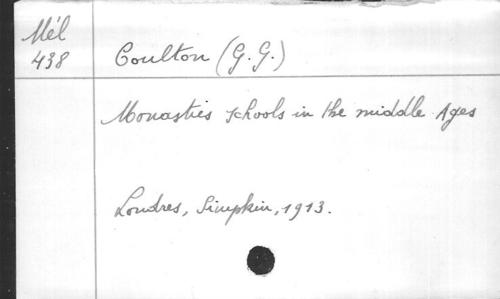 Mél
438
Coulton (G. G.)
Monastics schools in the middle Ages
Londres, Simpkin, 1913.